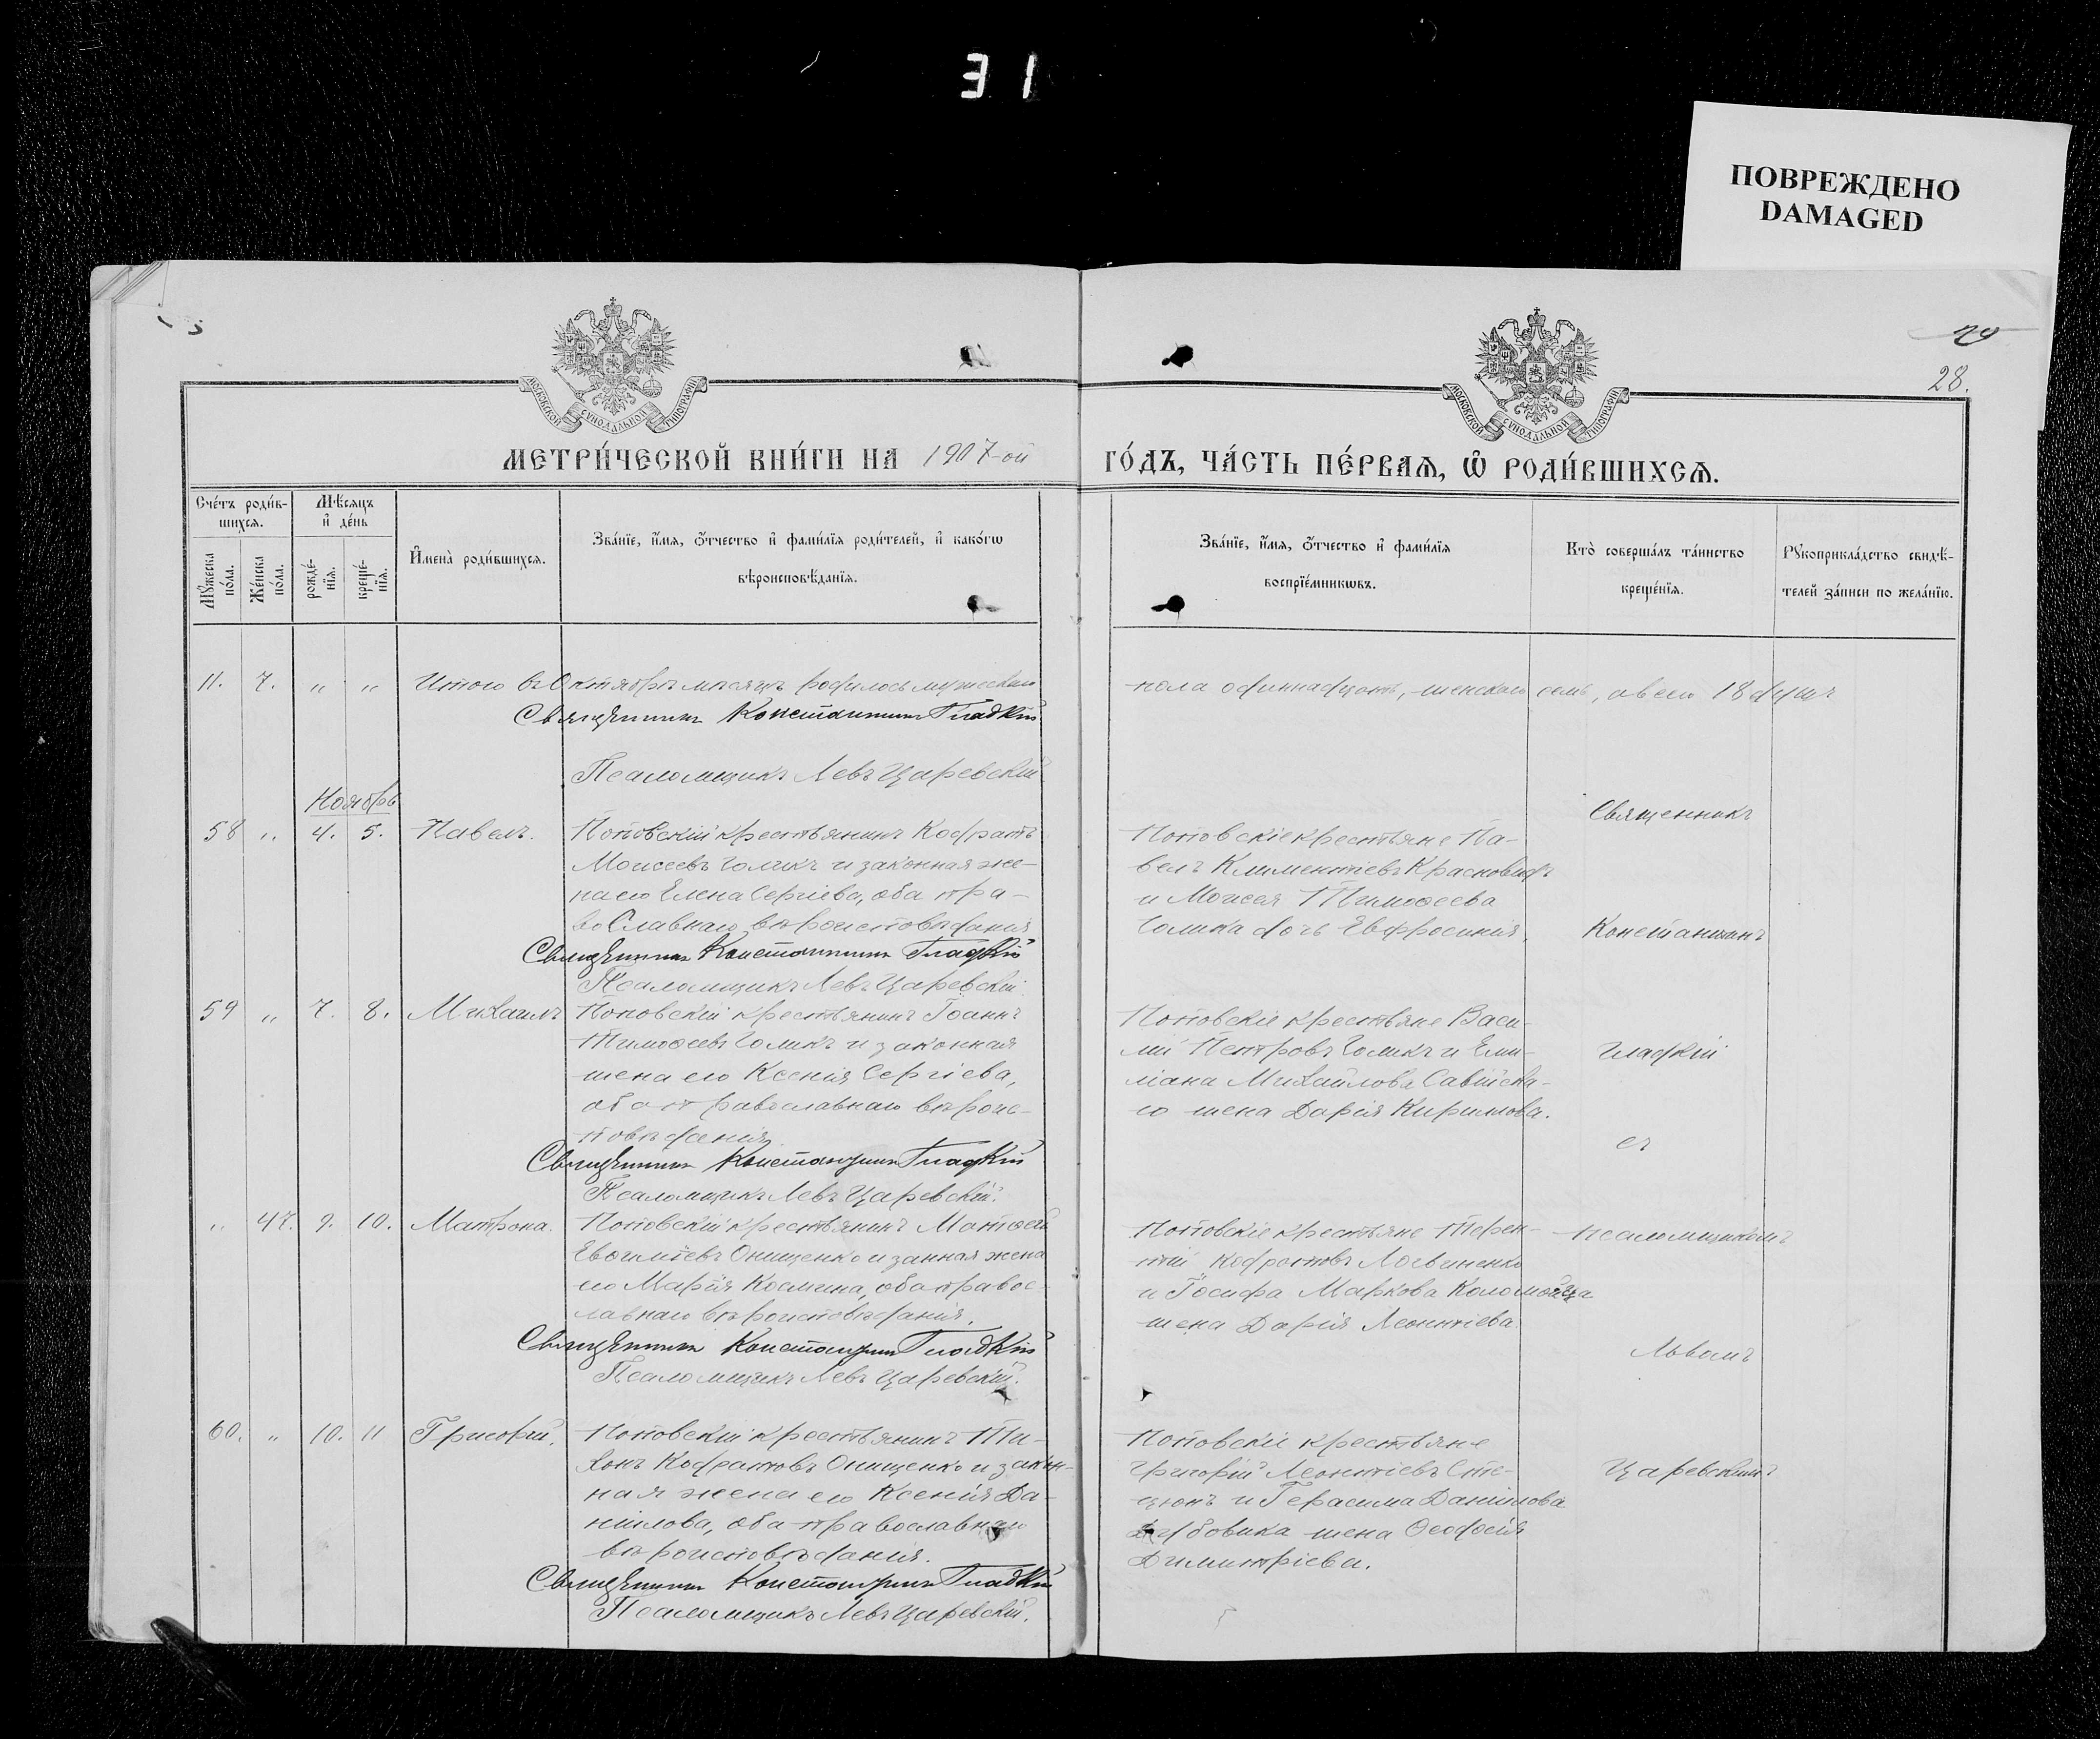 31
ПОВРЕЖДЕНО
DAMAGED
28.
МОСКОВСКОЙ СѴНОДАЛЬНОЙ ТИПОГРАФІИ
МОСКОВСКОЙ СѴНОДАЛЬНОЙ ТИПОГРАФІИ
МЕТРИ́ЧЕСКОЙ КНИ́ГИ НА 1907-ой
ГО́ДЪ, ЧА́СТЬ ПЕ́РВАѦ, Ѡ҆ РОДИ́ВШИХСѦ.
Сче́тъ роди́в-
шихсѧ.
Мѣ́сѧцъ
и҆ де́нь
Мꙋ́жеска
по́ла.
Же́нска
по́ла.
рожде́-
нїѧ.
креще́-
нїѧ.
И҆мена̀ роди́вшихсѧ.
Зва́нїе, и҆́мѧ, ѻ҆́тчество и҆ фами́лїѧ роди́телей, и҆ како́гѡ
вѣроисповѣ́данїѧ.
Зва́нїе, и҆́мѧ, ѻ҆́тчество и҆ фами́лїѧ
воспрїе́мникѡвъ.
Кто̀ соверша́лъ та́инство
креще́нїѧ.
Рꙋкоприкла́дство свидѣ́-
телей за́писи по жела́нїю.
11. 7. " " Итого въ Октябрѣ мѣсяцѣ родилось мужескаго
пола одиннадцать, женскаго семь, а всего 18 душъ
Священникъ Константинъ Гладкій
Псаломщикъ Левъ Царевскій
Ноябрь
58 " 4. 5. Павелъ. Поповскій крестьянинъ Кодратъ
Моисеевъ Голикъ и законная же-
на его Елена Сергіева, оба пра-
вославнаго вѣроисповѣданія
Священникъ Константинъ Гладкій
Псаломщикъ Левъ Царевскій
Поповскіе крестьяне Па-
велъ Климентіевъ
и Моисея Тимоѳеева
Голика дочь Евфросинія.
59 " 7. 8. Михаилъ Поповскій крестьянинъ Іоаннъ
Тимоѳеевъ Голикъ и законная
жена его Ксенія Сергіева,
оба православнаго вѣроис-
повѣданія
Священникъ Константинъ Гладкій
Псаломщикъ Левъ Царевскій.
Поповскіе крестьяне Васи-
лій Петровъ Голикъ и Еми-
ліана Михайлова Савійска-
го жена Дарія Кирилова.
" 47. 9. 10. Матрона. Поповскій крестьянинъ Матѳей
Евѳиміевъ Онищенко и занная жена
его Марія Космина, оба правос-
лавнаго вѣроисповѣданія.
Священникъ Константинъ Гладкій
Псаломщикъ Левъ Царевскій.
Поповскіе крестьяне Терен-
тій Кодратовъ Логвиненко
и Іосифа Маркова Коломойца
жена Дарія Леонтіева.
60. " 10. 11 Григорій. Поповскій крестьянинъ Ти-
хонъ Кодратовъ Онищенко и закон-
ная жена его Ксенія Да-
ніилова, оба православнаго
вѣроисповѣданія.
Священникъ Константинъ Гладкій
Псаломщикъ Левъ Царевскій.
Поповскіе крестьяне
Григорій Леонтіевъ Сте-
цюкъ и Герасима Даніилова
Дубовика жена Ѳеодосія
Димитріева.
Священникъ
Константинъ
Гладкій
съ
псаломщикомъ
Львомъ
Царевскимъ